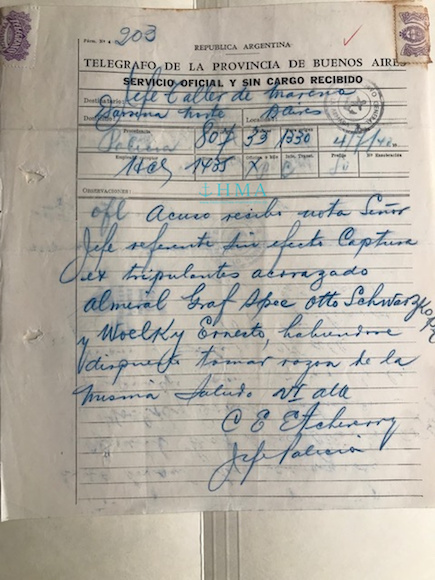 203
REPUBLICA ARGENTINA
TELEGRAFO DE LA PROVINCIA DE BUENOS AIRES
SERVICIO OFICIAL Y SIN CARGO RECIBIDO
Destinatario: Jefe Taller de Marina
Darsena Norte BAires
Procedencia
Policia 807 33 1330 4/7/40
HCS 1435 X
HMA
OBSERVACIONES:
ofl Acuso recibo nota Señor
Jefe referente sin efecto Captura
ex tripulantes acorazado
Almeral Graf Spee Otto Schwarzkopf
y Woelky Ernesto, habiendose
dispuesto tomar razon de la
misma Saludo
C E Etcheverry
Jefe Policia